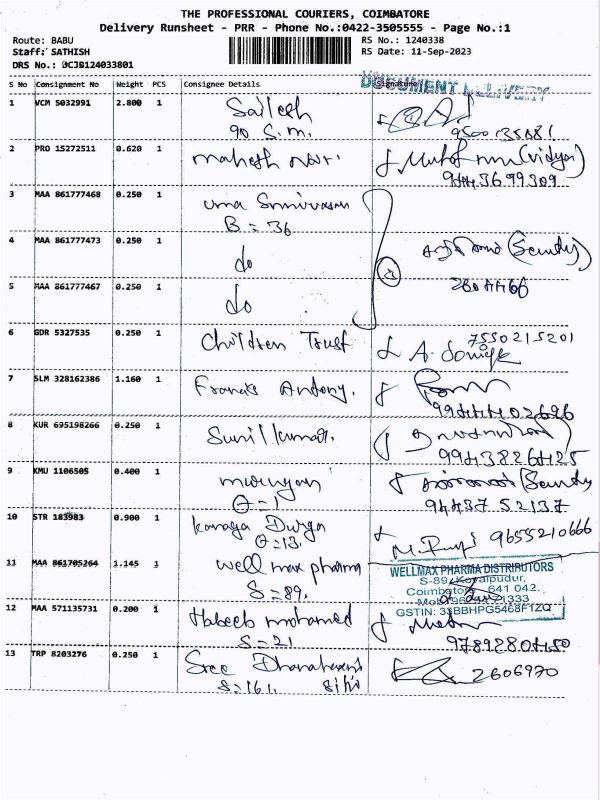 THE PROFESSIONAL COURIERS, COIMBATORE
Delivery Runsheet - PRR - Phone No.:0422-3505555 - Page No.:1
Route: BABU RS No.: 1240338
Staff: SATHISH RS Date: 11-Sep-2023
DRS No.: 0CJB124033801
DOCUMENT DELIVERY
S No Consignment No Weight PCS Consignee Details Signature
1 VCM 5032991 2.800 1 Sailesh
90 S.m.
2 PRO 15272511 0.620 1 mahesh (Vidya)
9443699309
3 MAA 861777468 0.250 1 uma Srinivasan
B = 36
4 MAA 861777473 0.250 1 do (Sendy)
5 MAA 861777467 0.250 1 do 2604466
6 GDR 5327535 0.250 1 Children Trust 7550215201
7 SLM 328162386 1.160 1 Francis Antony.
9944402696
8 KUR 695198266 0.250 1 Sunil kumar.
9943826425
9 KMU 1106505 0.400 1 murugan (Sendy)
O = 1 94437 52137
10 STR 183983 0.900 1 Kanaga Durga 9655210666
O = 13.
11 MAA 861705264 1.145 1 well max pharma
S = 89.
WELLMAX PHARMA DISTRIBUTORS
S-89, Kovaipudur,
Coimbatore 641 042.
GSTIN: 33BBHPG5468F1ZQ
12 MAA 571135731 0.200 1 Habeeb mohamed
S = 21 9789280450
13 TRP 8203276 0.250 1 Sree 2606970
S = 161.